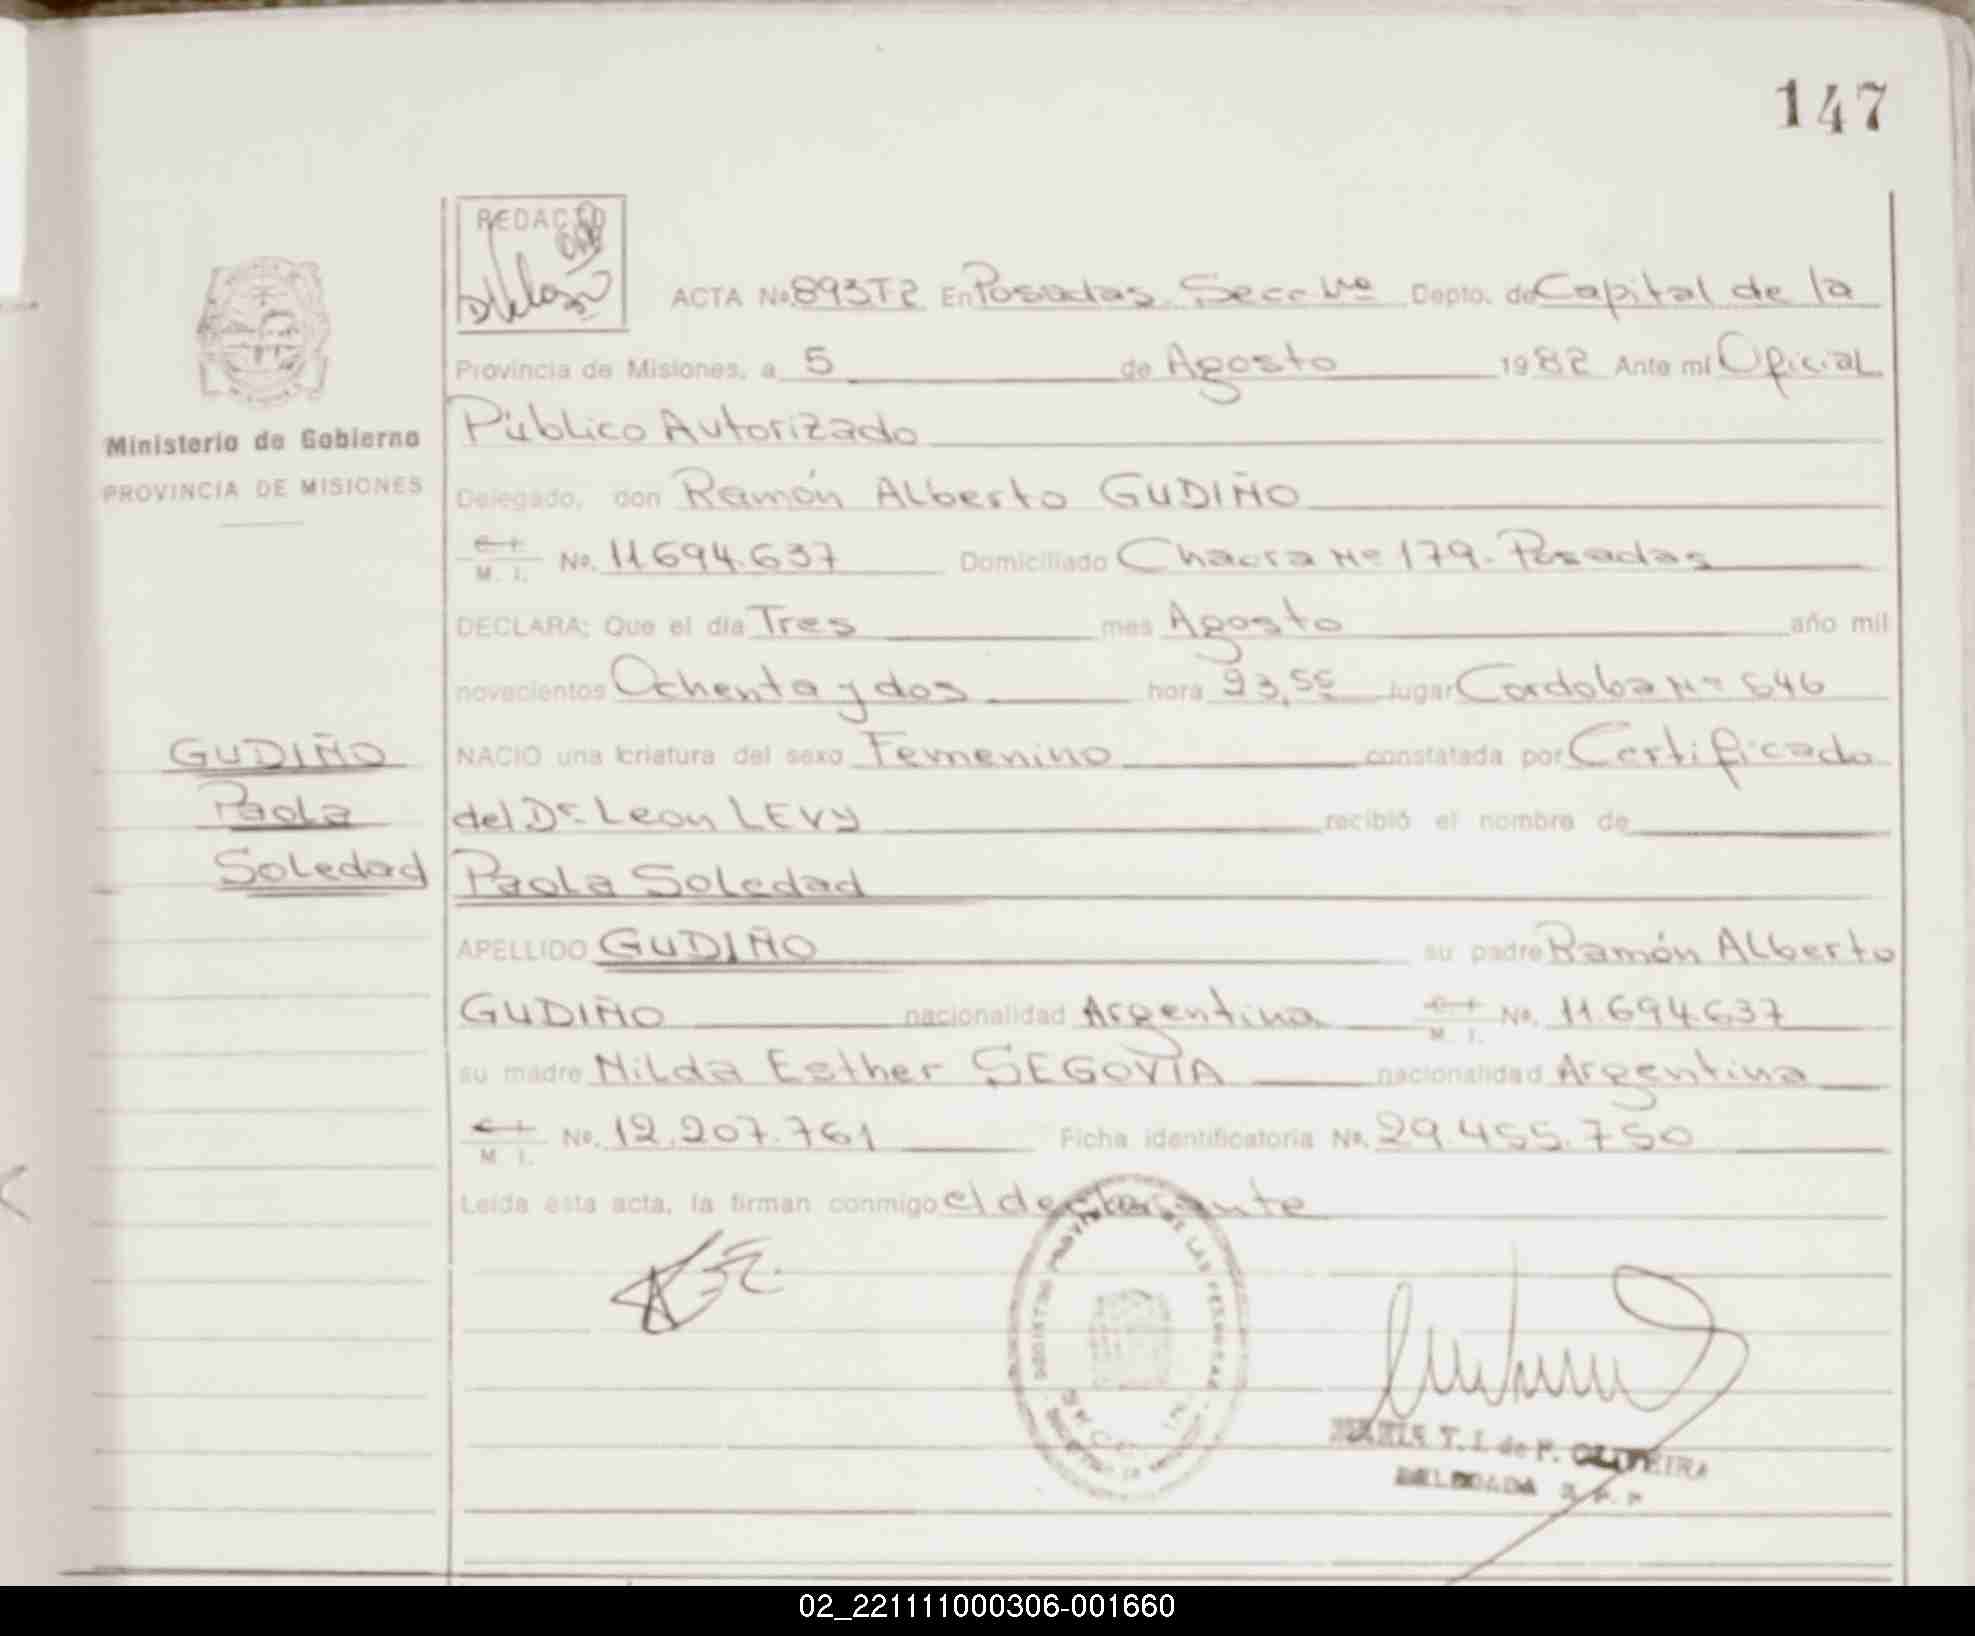 147
REDACTO
ACTA No. 893T2 En Posadas Secc Depto. de Capital de la
Provincia de Misiones, a 5 de Agosto 1982 Ante mí Oficial
Público Autorizado
Delegado, don Ramón Alberto GUDIÑO
M. I. No. 11.694.637 Domiciliado Chacra Nº 179. Posadas
DECLARA: Que el día Tres mes Agosto año mil
novecientos Ochenta y dos hora 23,55 lugar Cordoba Nº 646
NACIO una criatura del sexo Femenino constatada por Certificado
del Dr. Leon LEVY recibió el nombre de
Paola Soledad
APELLIDO GUDIÑO su padre Ramón Alberto
GUDIÑO nacionalidad Argentina M. I. No. 11.694.637
su madre Nilda Esther SEGOVIA nacionalidad Argentina
M. I. No. 12.207.761 Ficha identificatoria No. 29.455.750
Leída esta acta, la firman conmigo el declarante
Ministerio de Gobierno
PROVINCIA DE MISIONES
GUDIÑO
Paola
Soledad
REGISTRO PROVINCIAL DE LAS PERSONAS
T. I. de F. OLIVEIRA
DELEGADA
02_221111000306-001660